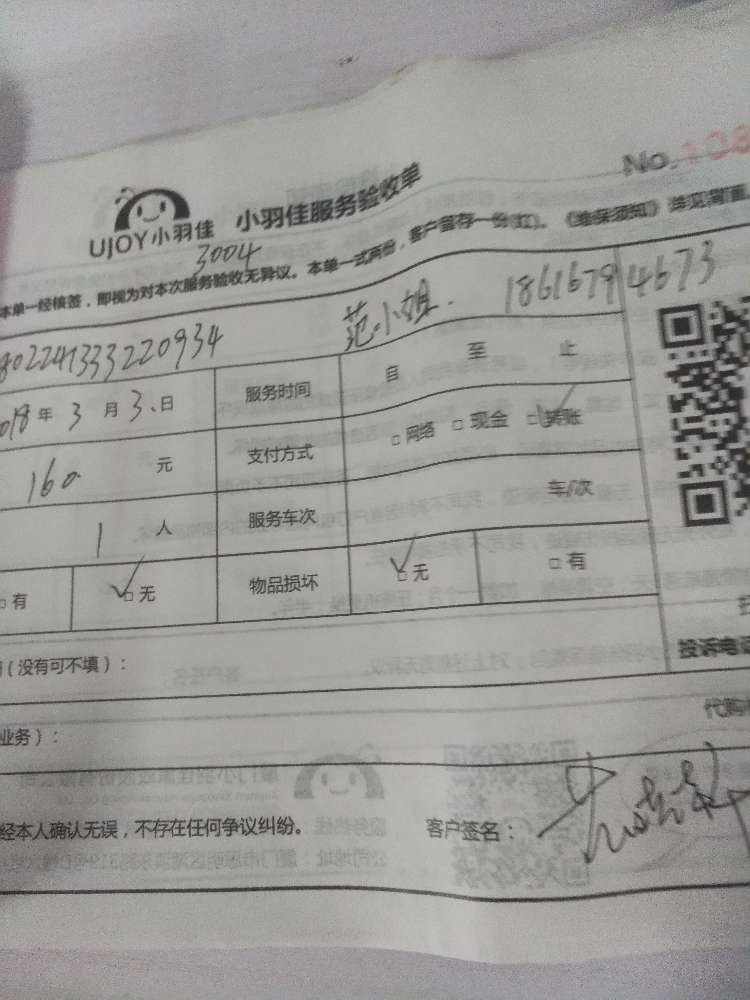 No. 108
UJOY小羽佳 小羽佳服务验收单
3004
本单一经核签，即视为对本次服务验收无异议。本单一式两份，客户留存一份(红)。《维保须知》详见背面。
80224133322 0934 范小姐. 18616794673
018年3月3.日 服务时间 自 至 止
160 元 支付方式 □网络 □现金 □转账
1 人 服务车次 车/次
□有 □无 物品损坏 □无 □有
(没有可不填)：
投诉电话
业务)： 代购
经本人确认无误，不存在任何争议纠纷。 客户签名：